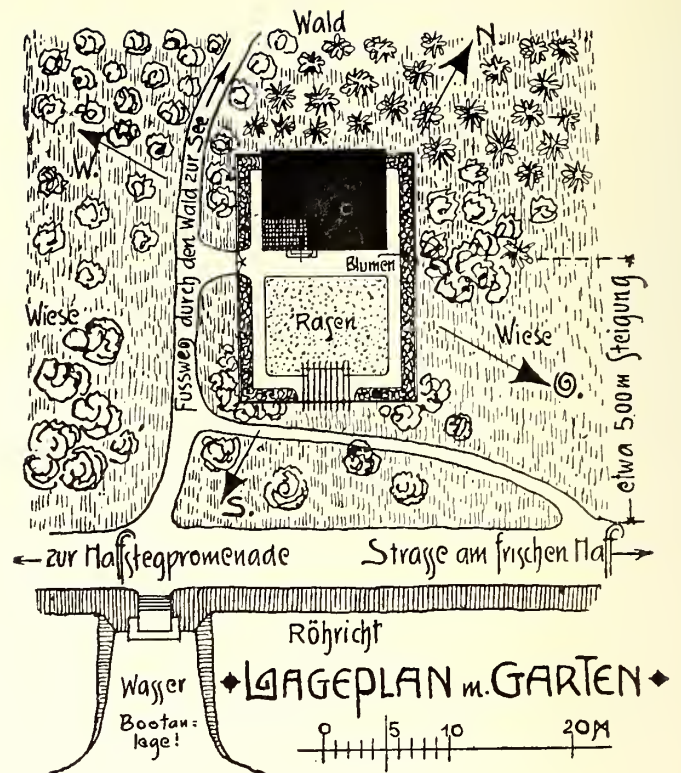 Wald
N.
W.
Fussweg durch den Wald zur See
Blumen
Rasen
Wiese
Wiese
O.
etwa 5,00 m Steigung
S.
zur Haffstegpromenade
Strasse am frischen Haff
Röhricht
Wasser
Bootan=
lage!
LAGEPLAN m. GARTEN
0 5 10 20 M